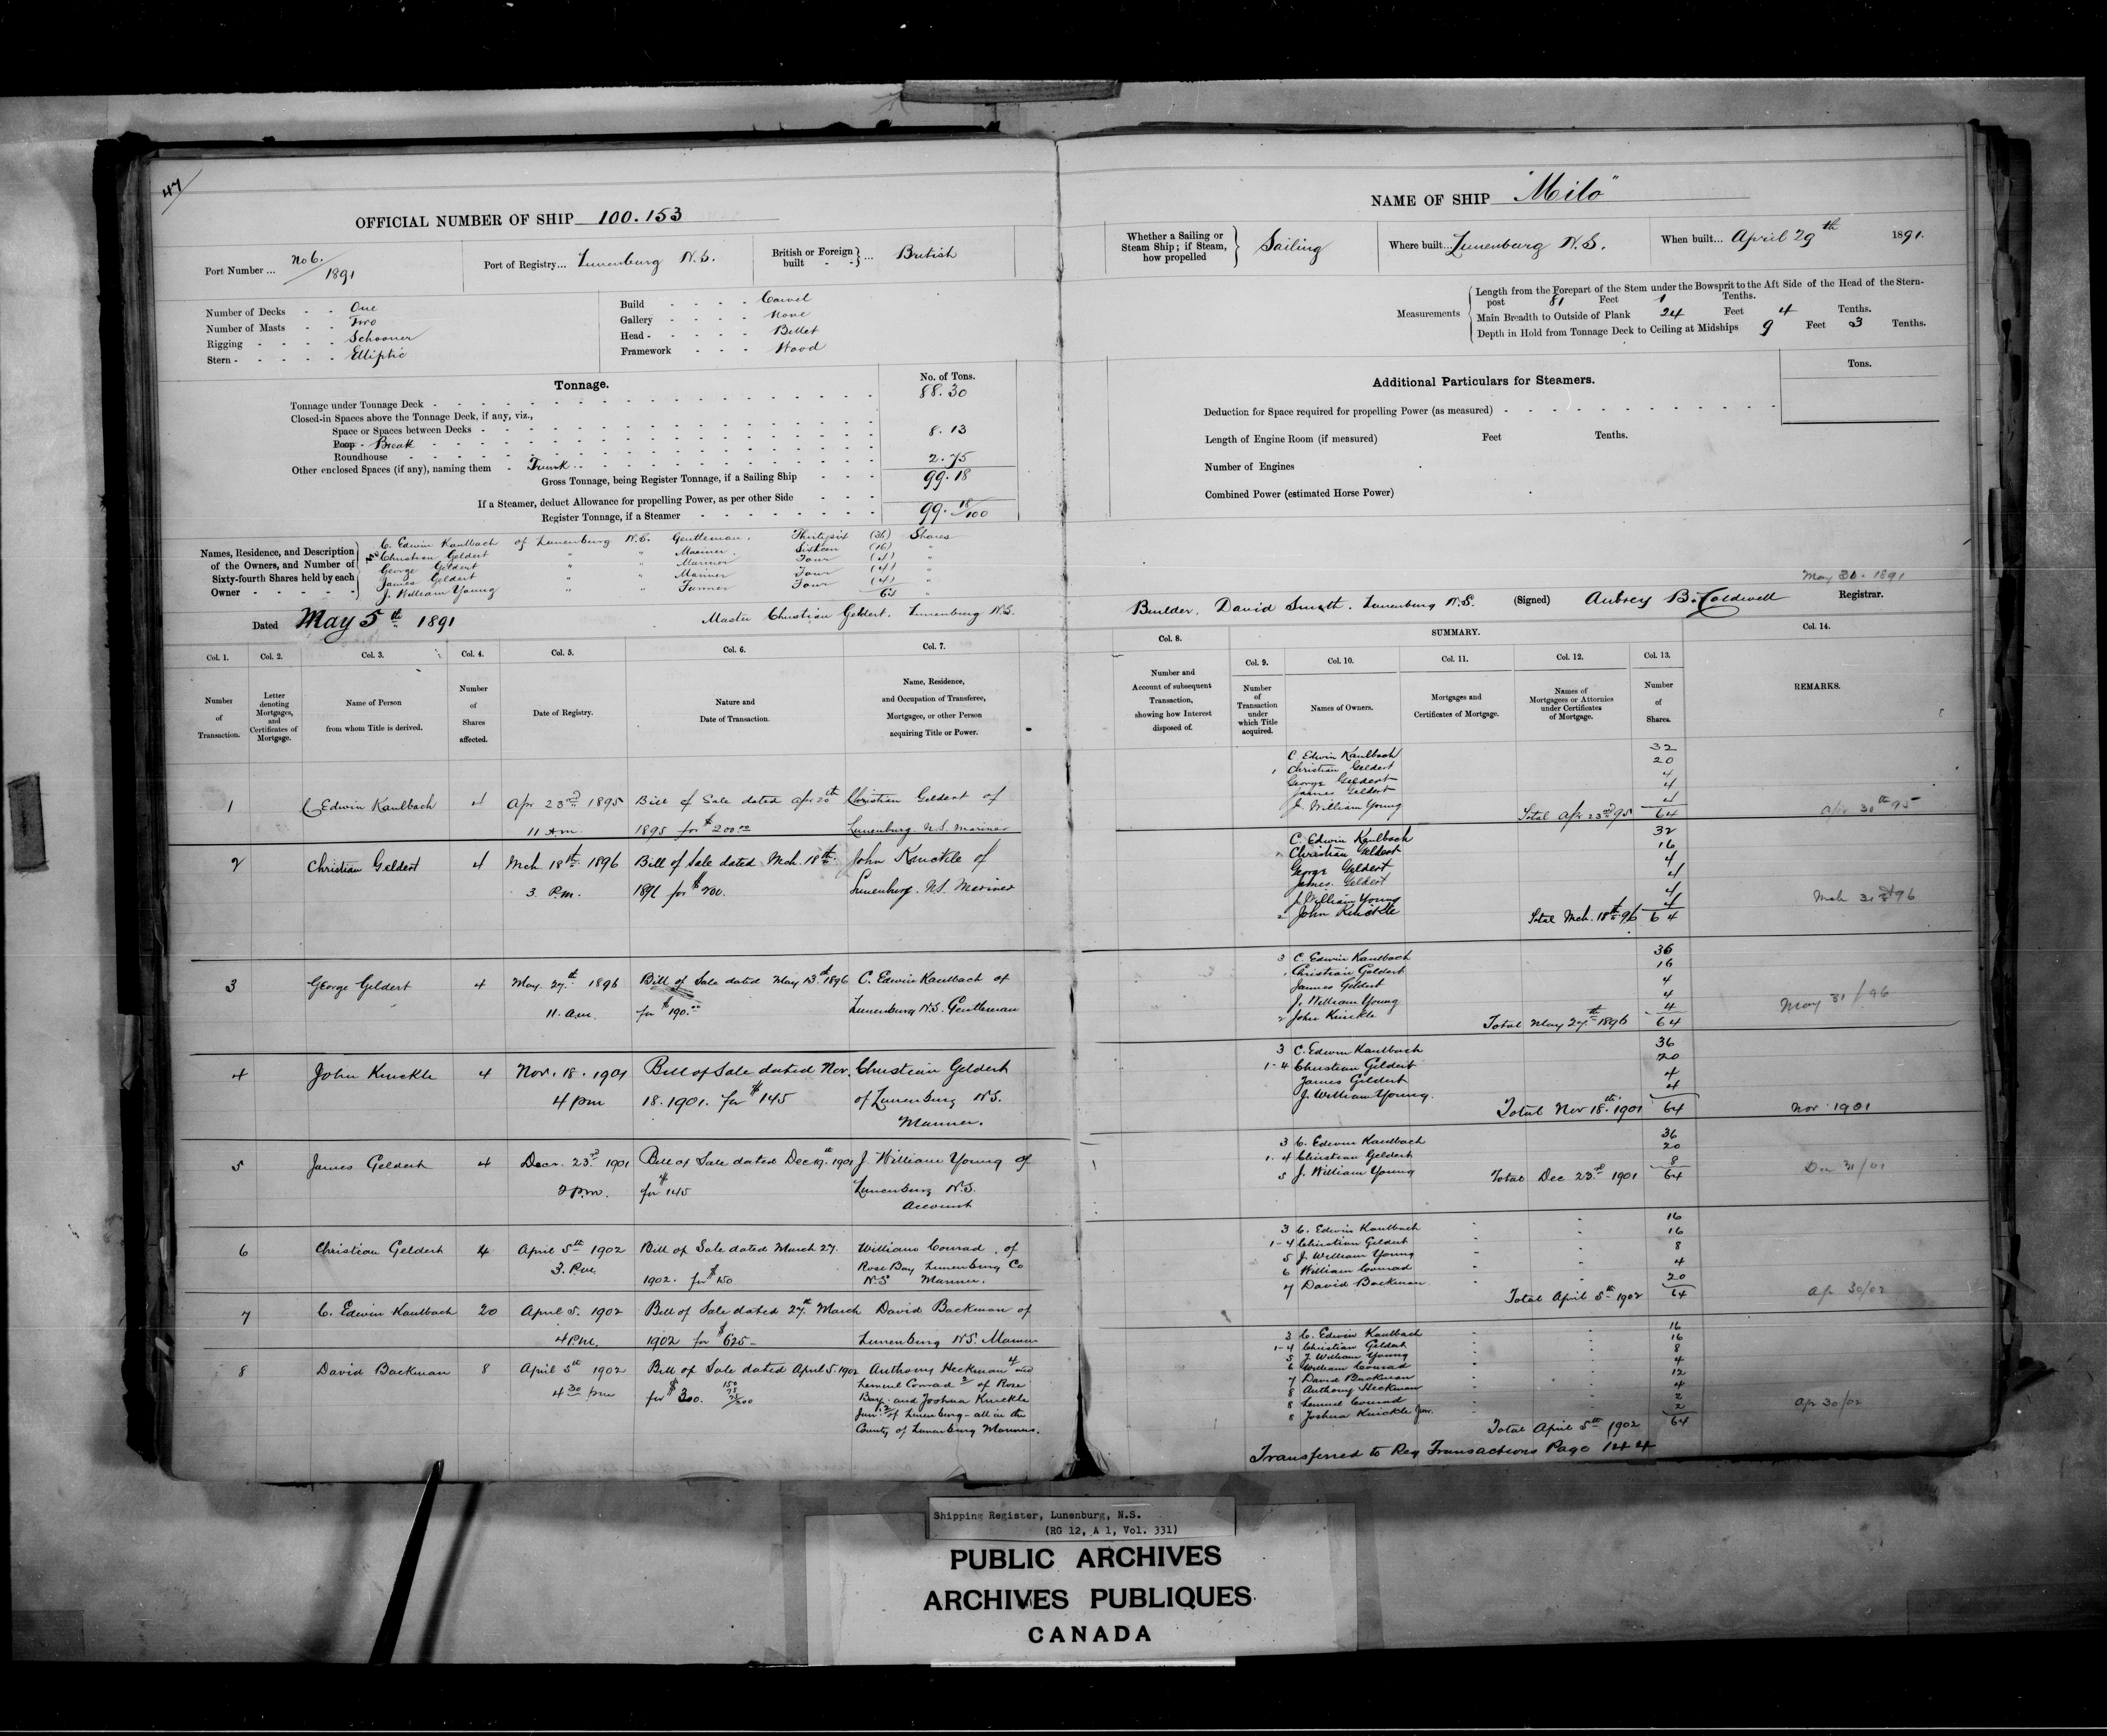 47
OFFICIAL NUMBER OF SHIP 100.153
Port Number ... No 6. / 1891
Port of Registry... Lunenburg N.S.
British or Foreign built - - } ... British
Number of Decks - - One
Number of Masts - - Two
Rigging - - - - Schooner
Stern - - - - - Elliptic
Build - - - - Carvel
Gallery - - - - None
Head - - - - - Billet
Framework - - - Wood
Tonnage.
No. of Tons.
Tonnage under Tonnage Deck - 88.30
Closed-in Spaces above the Tonnage Deck, if any, viz.,
Space or Spaces between Decks -
Poop - Break - 8.13
Roundhouse
Other enclosed Spaces (if any), naming them - Trunk - 2.75
Gross Tonnage, being Register Tonnage, if a Sailing Ship - - - 99.18
If a Steamer, deduct Allowance for propelling Power, as per other Side - - -
Register Tonnage, if a Steamer - 99.18/100
Names, Residence, and Description of the Owners, and Number of Sixty-fourth Shares held by each Owner - - - - -
C. Edwin Kaulbach of Lunenburg N.S. Gentleman. Thirtysix (36) Shares
Christian Geldert " " Mariner. Sixteen (16) "
George Geldert " " Mariner Four (4) "
James Geldert " " Mariner Four (4) "
J. William Young " " Farmer Four (4) "
64
Dated May 5th 1891
Master Christian Geldert. Lunenburg N.S.
Col. 1. Col. 2. Col. 3. Col. 4. Col. 5. Col. 6. Col. 7.
Number of Transaction.
Letter denoting Mortgages, and Certificates of Mortgage.
Name of Person from whom Title is derived.
Number of Shares affected.
Date of Registry.
Nature and Date of Transaction.
Name, Residence, and Occupation of Transferee, Mortgagee, or other Person acquiring Title or Power.
1 C Edwin Kaulbach 4 Apr 23rd 1895 Bill of Sale dated Apr 20th Christian Geldert of
11 am 1895 for $200.00 Lunenburg. N.S. Mariner
2 Christian Geldert 4 Mch 18th 1896 Bill of Sale dated Mch. 18th John Knickle of
3 P.m. 1896 for $200. Lunenburg. N.S. Mariner
3 George Geldert 4 May 27th 1896 Bill of Sale dated May 13th 1896 C. Edwin Kaulbach of
11. a.m. for $190.00 Lunenburg N.S. Gentleman
4 John Knickle 4 Nov. 18. 1901 Bill of Sale dated Nov. Christian Geldert
4 pm 18. 1901. for $145 of Lunenburg N.S.
Mariner.
5 James Geldert 4 Decr. 23rd 1901 Bill of Sale dated Dec 19th 1901 J. William Young of
2 P.m. for $145 Lunenburg N.S.
Account
6 Christian Geldert 4 April 5th 1902 Bill of Sale dated March 27. William Conrad, of
3. P.m. 1902. for $150 Rose Bay Lunenburg Co
N.S Mariner.
7 C. Edwin Kaulbach 20 April 5. 1902 Bill of Sale dated 27th March David Backman of
4 P.m. 1902 for $625- Lunenburg N.S. Mariner
8 David Backman 8 April 5th 1902 Bill of Sale dated April 5. 1902 Anthony Heckman 4 and
4 30 pm for $300. 150 75 75 /300 Lemuel Conrad 2 of Rose
Bay. and Joshua Knickle
Junr. 2 of Lunenburg - all in the
County of Lunenburg Mariners.
NAME OF SHIP "Milo"
Whether a Sailing or Steam Ship; if Steam, how propelled } Sailing
Where built... Lunenburg N.S.
When built... April 29th 1891.
Measurements
Length from the Forepart of the Stem under the Bowsprit to the Aft Side of the Head of the Stern-
post 81 Feet 1 Tenths.
Main Breadth to Outside of Plank 24 Feet 4 Tenths.
Depth in Hold from Tonnage Deck to Ceiling at Midships 9 Feet 3 Tenths.
Additional Particulars for Steamers.
Tons.
Deduction for Space required for propelling Power (as measured) -
Length of Engine Room (if measured) Feet Tenths.
Number of Engines
Combined Power (estimated Horse Power)
May 30. 1891
Builder. David Smith. Lunenburg N.S. (Signed) Aubrey B. Caldwell Registrar.
SUMMARY.
Col. 8. Col. 9. Col. 10. Col. 11. Col. 12. Col. 13. Col. 14.
Number and Account of subsequent Transaction, showing how Interest disposed of.
Number of Transaction under which Title acquired.
Names of Owners.
Mortgages and Certificates of Mortgage.
Names of Mortgagees or Attornies under Certificates of Mortgage.
Number of Shares.
REMARKS.
C. Edwin Kaulbach 32
1 Christian Geldert 20
George Geldert 4
James Geldert 4
J. William Young 4
Total Apr 23rd 95 64 Apr 30th 95
C. Edwin Kaulbach 32
1 Christian Geldert 16
George Geldert 4
James. Geldert 4
J. William Young 4
2 John Knickle 4
Total Mch. 18th 96 64 Mch 31st 96
3 C. Edwin Kaulbach 36
1 Christian Geldert 16
James Geldert 4
J. William Young 4
2 John Knickle 4
Total May 27th 1896 64 May 31/96
3 C. Edwin Kaulbach 36
1-4 Christian Geldert 20
James Geldert 4
J. William Young. 4
Total Nov 18th. 1901 64 Nov 1901
3 C. Edwin Kaulbach 36
1. 4 Christian Geldert 20
5 J. William Young 8
Total Dec 23rd 1901 64 Dec 31/01
3 C. Edwin Kaulbach 16
1-4 Christian Geldert 16
5 J. William Young 8
6 William Conrad 4
7 David Backman 20
Total April 5th 1902 64 Apr 30/02
3 C. Edwin Kaulbach 16
1-4 Christian Geldert 16
5 J William Young 8
6 William Conrad 4
7 David Backman 12
8 Anthony Heckman 4
8 Lemuel Conrad 2
8 Joshua Knickle Junr. 2
Total April 5th 1902 64 Apr 30/02
Transferred to Reg Transactions Page 144
Shipping Register, Lunenburg, N.S.
(RG 12, A 1, Vol. 331)
PUBLIC ARCHIVES
ARCHIVES PUBLIQUES
CANADA